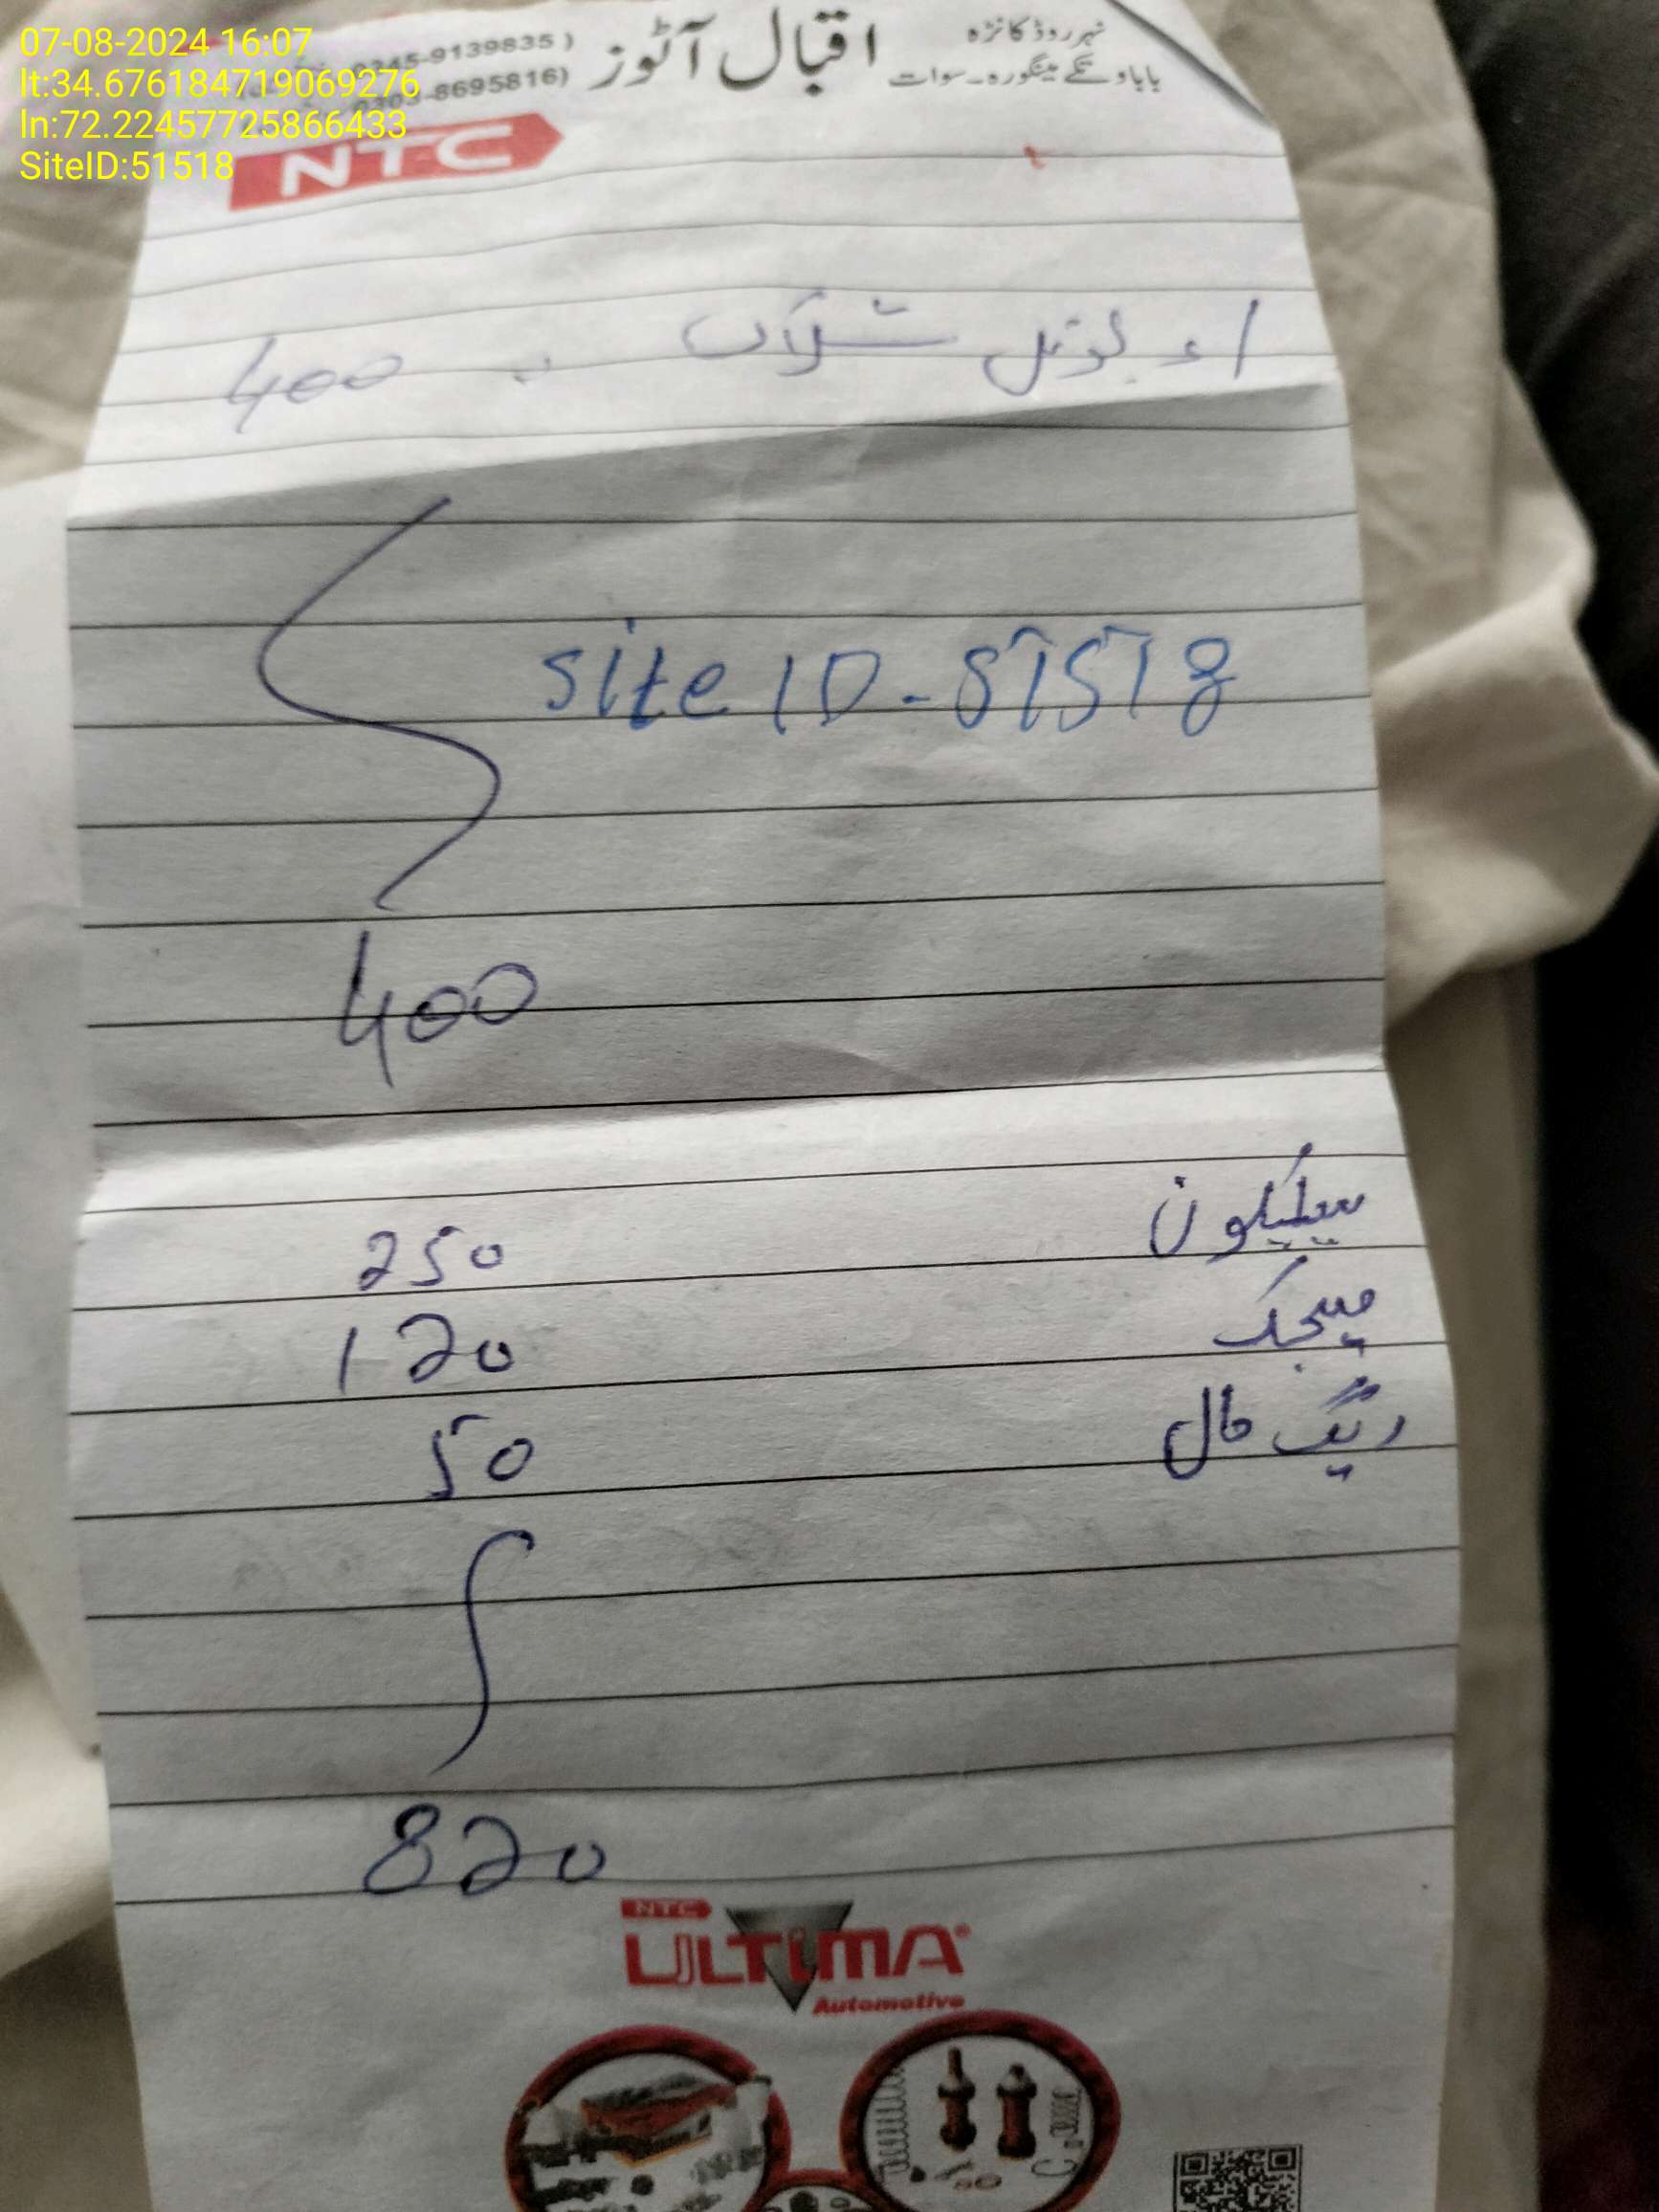 07-08-2024 16:07
lt:34.676184719069276
ln:72.22457725866433
SiteID:51518
اقبال آٹوز
نہر روڈ کانڑہ
مینگورہ۔سوات
0345-9139835)
0303-8695816)
NTC
1 عدد بوتل 400
site ID-51518
400
سیلیکون 250
میجک 120
ریگ مال 50
820
NTC
ULTIMA®
Automotive